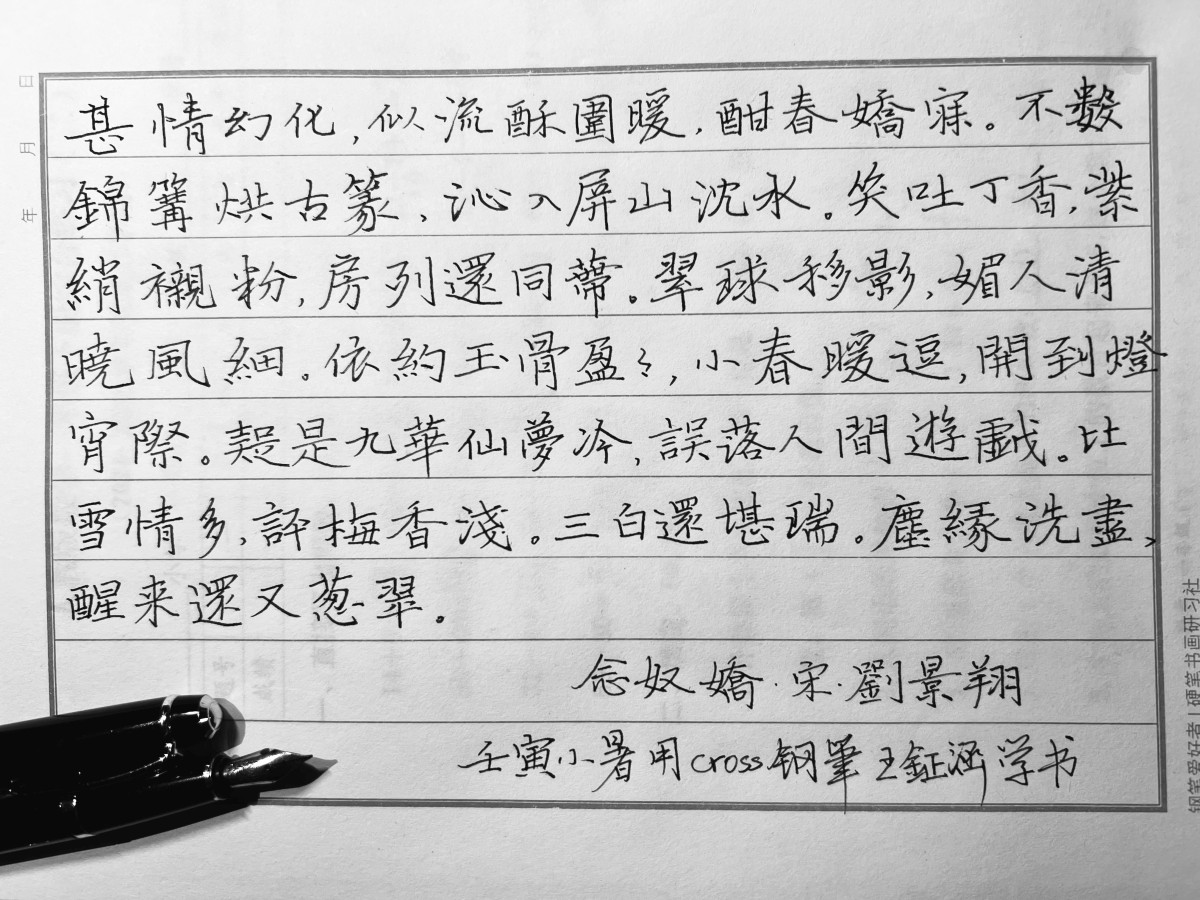 甚情幻化，似流酥圍暖，酣春嬌寐。不數
錦篝烘古篆，沁入屏山沈水。笑吐丁香，紫
綃襯粉，房列還同蔕。翠球移影，媚人清
曉風細。依約玉骨盈々，小春暖逗，開到燈
宵際。疑是九華仙夢冷，誤落人間遊戲。比
雪情多，評梅香淺。三白還堪瑞。塵緣洗盡、
醒来還又葱翠。
念奴嬌·宋·劉景翔
壬寅小暑用cross钢筆王鉦涵学书
年 月 日
钢笔爱好者|硬笔书画研习社